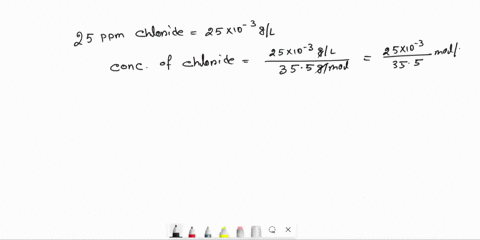 25 ppm chloride = 25×10⁻³ g/L
conc. of chloride = 25×10⁻³ g/L / 35.5 g/mol = 25×10⁻³ / 35.5 mol/